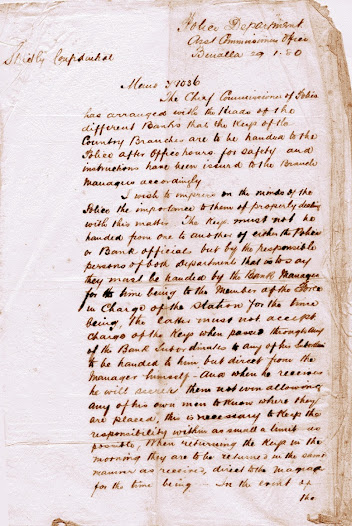 Police Department
Asst Commissioners Office
Benalla 29.1.80
Strictly Confidential
Memo 3/1036
The Chief Commissioner of Police
has arranged with the Heads of the
different Banks that the Keys of the
Country Branches are to be handed to the
Police after Office hours for safety and
instructions have been issued to the Branch
Managers accordingly
I wish to impress on the minds of the
Police the importance to them of properly dealing
with this matter. The Keys must not be
handed from one to another of either the Police
or Bank officials but by the responsible
persons of both Departments that is to say
they must be handed by the Bank Manager
for the time being to the Member of the Force
in Charge of the Station for the time
being, the latter must not accept
charge of the Keys when passed through any
of the Bank Subordinates to any of his Subordinates
to be handed to him but direct from the
Manager himself. And when he receives
he will secrete them not even allowing
any of his own men to Know where they
are placed, this is necessary to Keep the
responsibility within as small a limit as
possible. When returning the Keys in the
morning they are to be returned in the same
manner as received, direct to the Manager
for the time being. In the event of
the